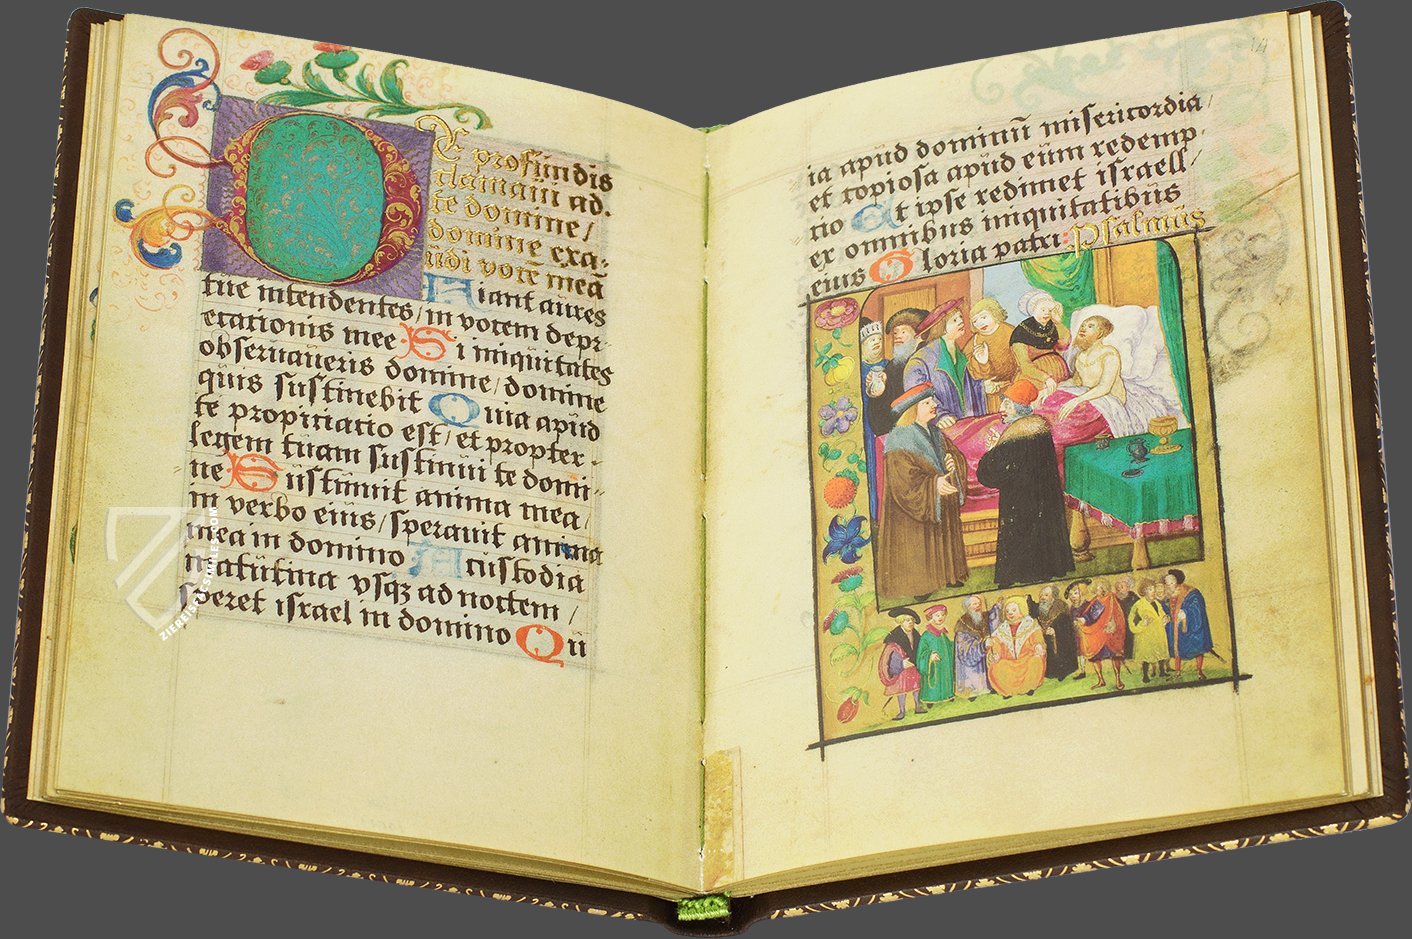 De profundis
clamaui ad.
te domine/
domine exa-
udi vocē meā
Fiant aures
tue intendentes/ in vocem depr-
ecationis mee Si iniquitates
obseruaueris domine/ domine
quis sustinebit Quia apud
te propitiatio est/ et propter-
legem tuam sustinui te domi-
ne Sustinuit anima mea/
in verbo eius/ sperauit anima
mea in domino A custodia
matutina vsqz ad noctem/
speret israel in domino Qu
ZIEREIS FACSIMILES.COM
141
ia apud dominū misericordia/
et copiosa apud eum redemp-
tio Et ipse redimet israell/
ex omnibus iniquitatibus
eius Gloria patri: Psalmus